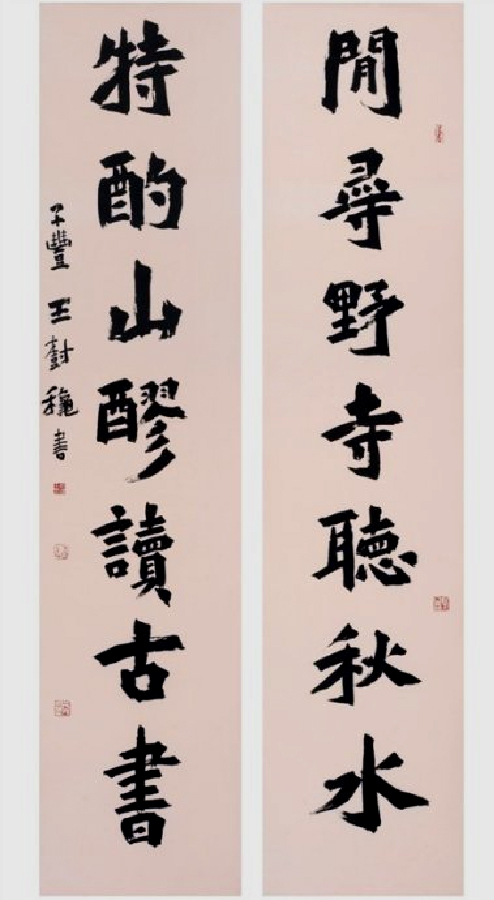 閒尋野寺聽秋水
特酌山醪讀古書
子豐 王對穐書